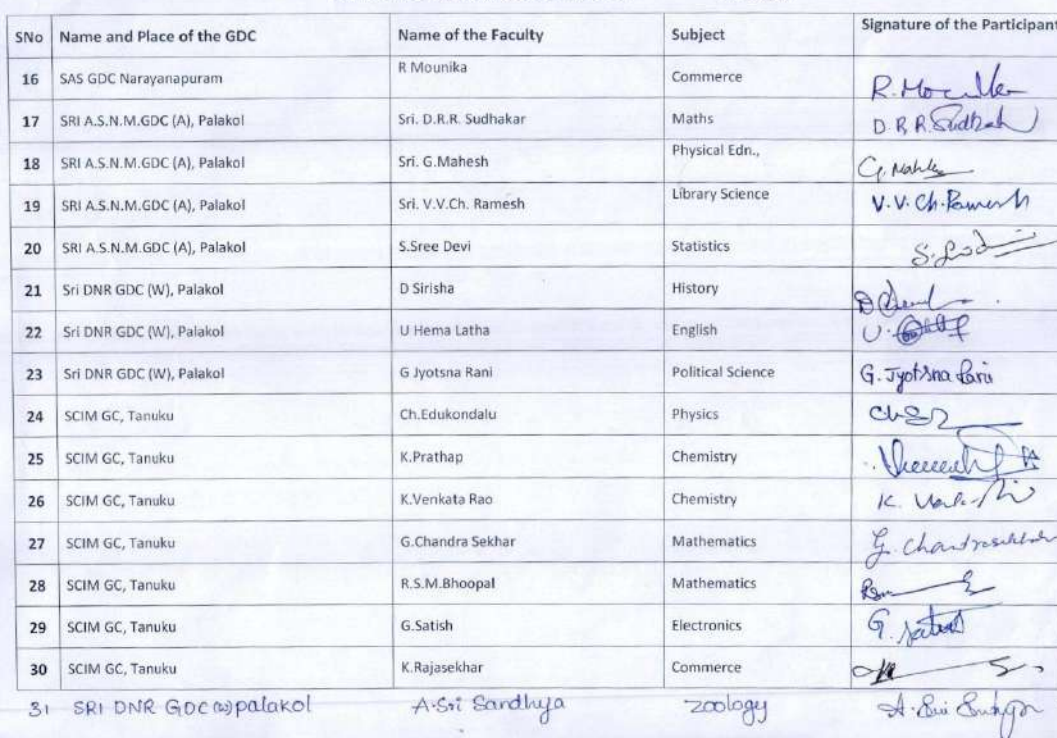 SNo Name and Place of the GDC Name of the Faculty Subject Signature of the Participant
16 SAS GDC Narayanapuram R Mounika Commerce R.
17 SRI A.S.N.M.GDC (A), Palakol Sri. D.R.R. Sudhakar Maths D.R.R.
18 SRI A.S.N.M.GDC (A), Palakol Sri. G.Mahesh Physical Edn., G.
19 SRI A.S.N.M.GDC (A), Palakol Sri. V.V.Ch. Ramesh Library Science V.V.Ch.Ramesh
20 SRI A.S.N.M.GDC (A), Palakol S.Sree Devi Statistics S.
21 Sri DNR GDC (W), Palakol D Sirisha History D
22 Sri DNR GDC (W), Palakol U Hema Latha English U.
23 Sri DNR GDC (W), Palakol G Jyotsna Rani Political Science G. Jyotsna Rani
24 SCIM GC, Tanuku Ch.Edukondalu Physics
25 SCIM GC, Tanuku K.Prathap Chemistry
26 SCIM GC, Tanuku K.Venkata Rao Chemistry K.
27 SCIM GC, Tanuku G.Chandra Sekhar Mathematics G.
28 SCIM GC, Tanuku R.S.M.Bhoopal Mathematics
29 SCIM GC, Tanuku G.Satish Electronics G.
30 SCIM GC, Tanuku K.Rajasekhar Commerce
31 SRI DNR GDC (W) palakol A.Sri Sandhya zoology A. Sri